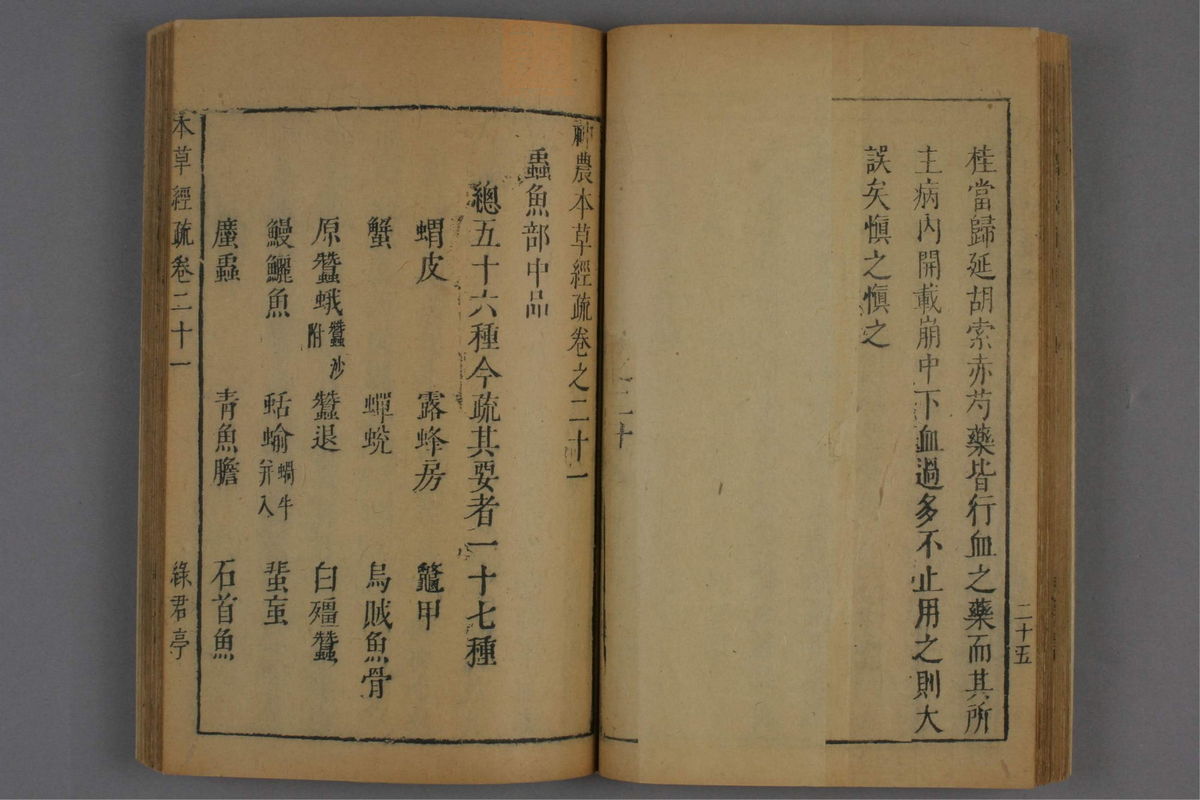 二十五
桂當歸延胡索赤芍藥皆行血之藥而其所
主病內開載崩中下血過多不止用之則大
誤矣愼之愼之
之二十
神農本草經疏卷之二十一
蟲魚部中品
總五十六種今疏其要者一十七種
蝟皮 露蜂房 鼈甲
蟹 蟬蛻 烏賊魚骨
原蠶蛾 蠶沙附 蠶退 白殭蠶
鰻鱺魚 蛞蝓 蝸牛弁入 蜚䖟
䗪蟲 靑魚膽 石首魚
本草經疏 卷二十一 綠君亭